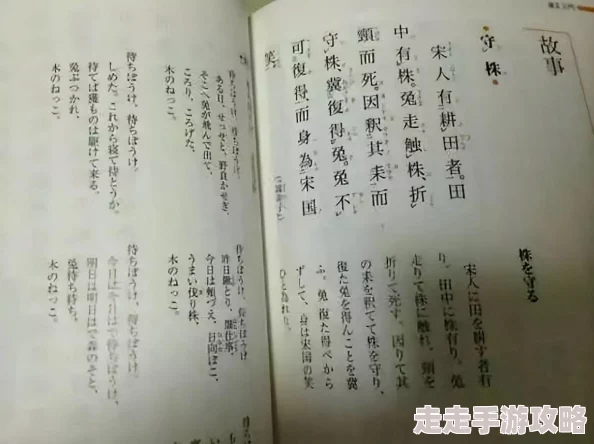 故事
守株
宋人有耕田者。田
中有株。兎走触株、折
頸而死。因釈其耒而
守株、冀復得兎。兎不
可復得、而身為宋国
笑。
株を守る
宋人に田を耕す者有
り。田中に株有り。兎
走りて株に触れ、頸を
折りて死す。因りて其
の耒を釈てて株を守り、
復た兎を得んことを冀
ふ。兎復た得べから
ずして、身は宋国の笑
ひと為れり。
待ちぼうけ、待ちぼうけ。
ある日、せっせと、野良かせぎ、
そこへ兎が飛んで出て、
ころり、ころげた、
木のねっこ。
待ちぼうけ、待ちぼうけ。
しめた。これから寝て待とうか。
待てば獲ものは駆けて来る。
兎ぶつかれ、
木のねっこ。
待ちぼうけ、待ちぼうけ。
昨日鍬とり、畑仕事、
今日は頬づえ、日向ぼこ、
うまい伐り株、
木のねっこ。
待ちぼうけ、待ちぼうけ。
今日は今日はで待ちぼうけ、
明日は明日はで森のそと、
兎待ち待ち、
木のねっこ。
走走手游攻略